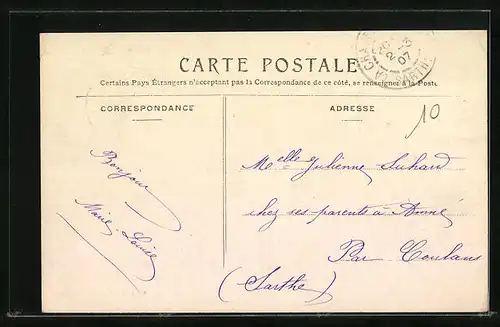 CARTE POSTALE
Certains Pays Étrangers n'acceptant pas la Correspondance de ce côté, se renseigner à la Poste
CORRESPONDANCE
ADRESSE
10
Bonjour
Marie-Louise
Melle Julienne Suhard
chez ses parents à Amné
Par Coulans
(Sarthe)
07
SARTHE